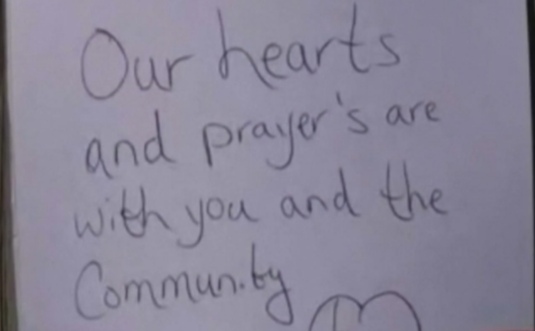 Our hearts
and prayer's are
with you and the
Community